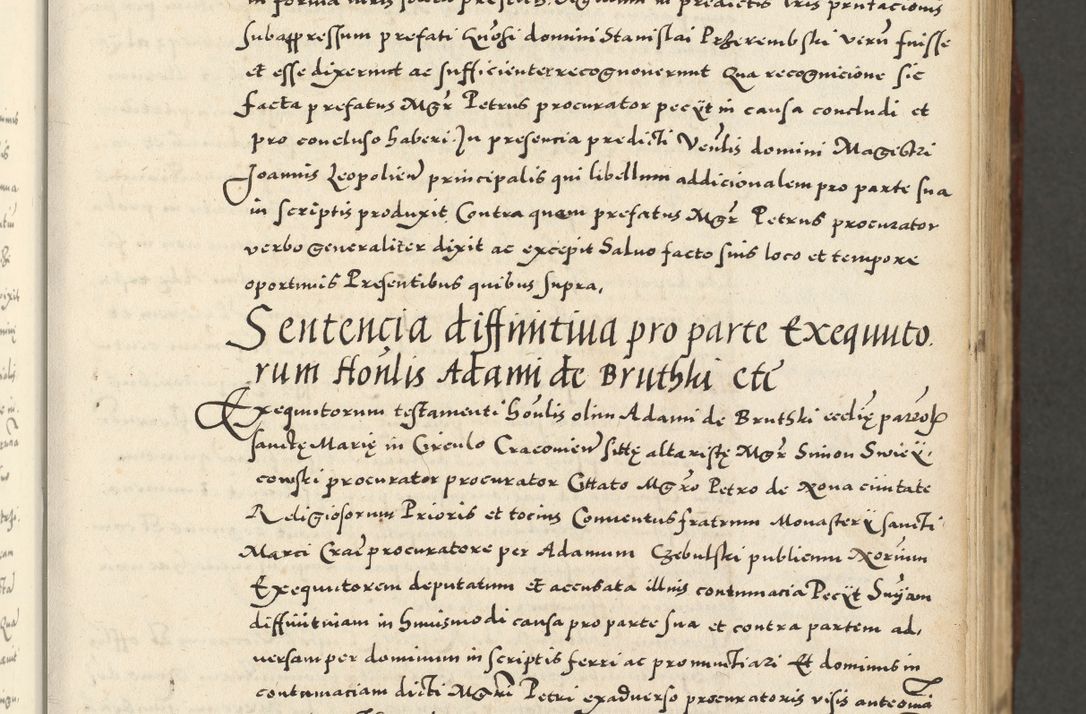 in forma iuris solita presens. Cognomi in predictis lris pntacionis
subappressum prefati Gnosi domini Stanislai Przerembski verum fuisse
et esse dixerunt ac sufficienter recognouerunt Qua recognicione sic
facta prefatus Mgr Petrus procurator pecyt in causa concludi et
pro concluso haberi. In presencia predicti Venlis domini Magistri
Joannis Leopolien principalis qui libellum addicionalem pro parte sua
in scriptis produxit Contra quem prefatus Mgr Petrus procurator
verbo generaliter dixit ac excepit Saluo facto suis loco et tempore
oportunis Presentibus quibus supra.
Sentencia diffinitiua pro parte Exequuto.
rum Honlis Adami de Bruthki etc
Exequutorum testamenti honlis olim Adami de Bruthki ecclie parrol
sanctę Marię in Circulo Cracouien sittę altaristę Mgr Simon Swiey.
cowski procurator procurator Cttato Mgro Petro de Noua ciuitate
Religiosorum Prioris et tocius Conuentus fratrum Monastery sancti
Marci Crac procuratore per Adamum Czebulski publicum Xorium
Exequutorem deputatum et accusata illius contumacia Pecyt Suyam
diffinitiuam in huiusmodi causa pro parte sua et contra partem ad.
uersam per dominum in scriptis ferri ac pronunctiari Et dominus in
contumaciam dicti Mgri Petri exaduerso procuratoris visis ante omia